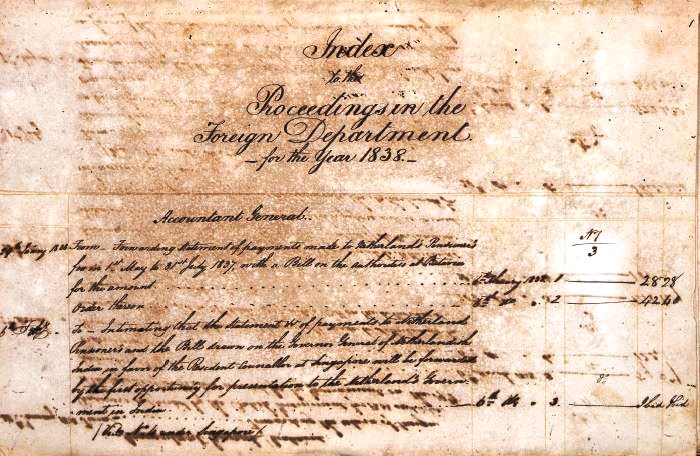 Index
to the
Proceedings in the
Foreign Department.
- for the Year 1838. -
Accountant General.
From - Forwarding statement of payments made to Netherland's Pensioners
from 1st May to 31st July 1837, with a Bill on the authorities at Batavia
for the amount 1 2828
Order thereon 2
To - Intimating that the Statement &c of payments to Netherland
Pensioners and the Bill drawn on the Governor General of Netherlands
India in favor of the Resident Councillor at Singapore will be forwarded
by the first opportunity for presentation to the Netherland's Govern-
ment in India 3 Ibid Ibid
(Vide Note under Singapore)